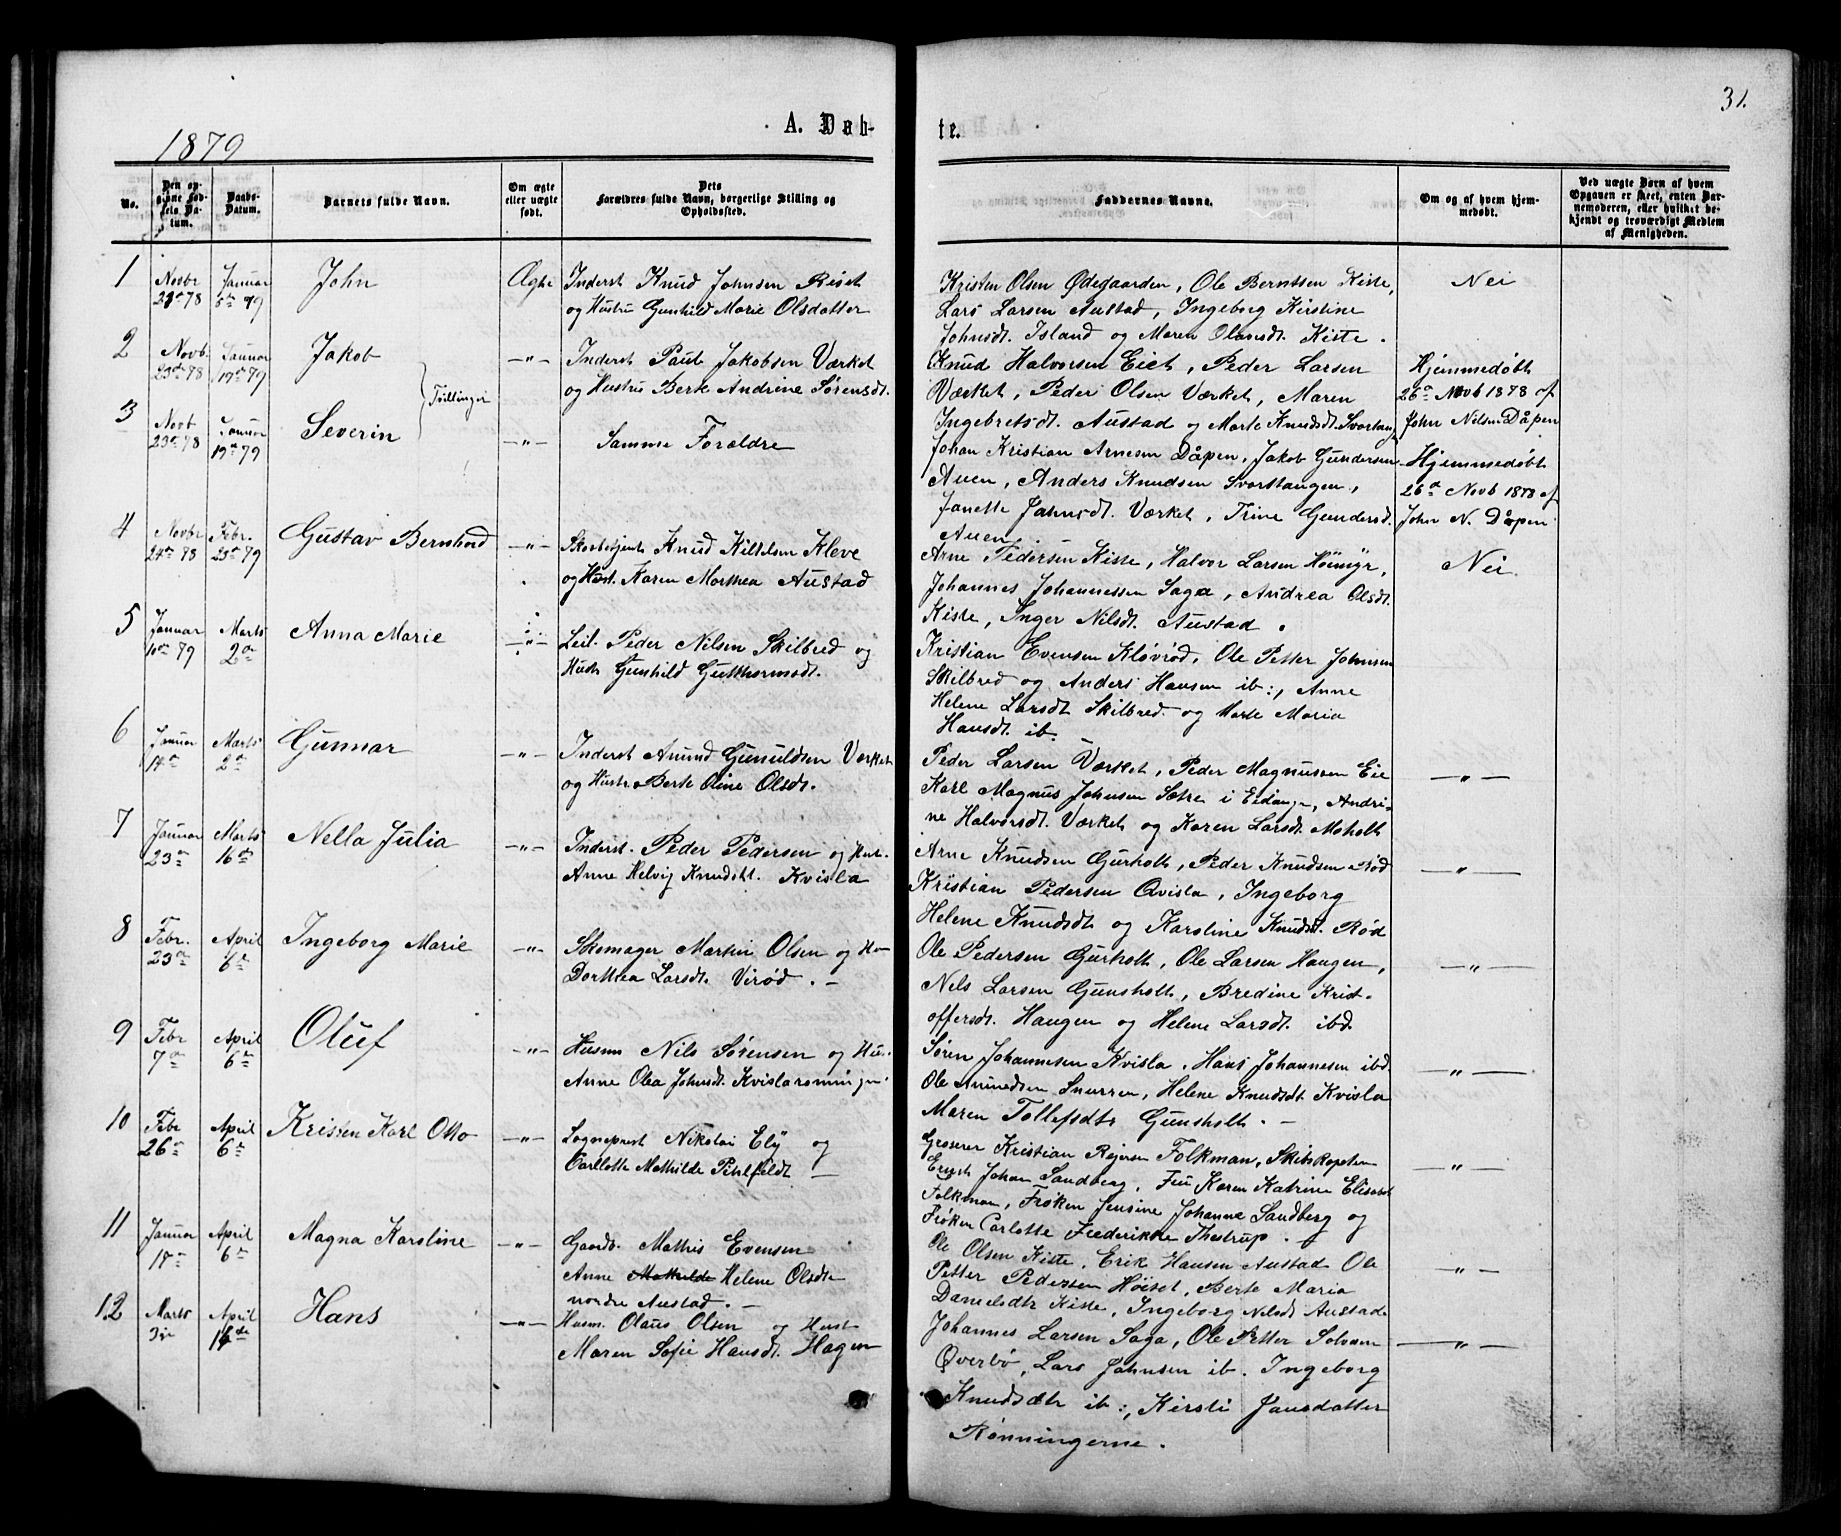 31.
1879
A. Døb-
te.
No.
Den op-
givne Fød-
sels Da-
tum.
Daabs-
Datum.
Barnets fulde Navn.
Om ægte
eller uægte
født.
Dets
Forældres fulde Navn, borgerlige Stilling og
Opholdssted.
Faddernes Navne.
Om og af hvem hjem-
medøbt.
Ved uægte Børn af hvem
Opgaven er skeet, enten Bar-
nemoderen, eller hvilket be-
kjendt og troværdigt Medlem
af Menigheden.
1
Novbr
78
Januar
5te 79
John
Ægte
Inderst Knud Johnsen
og Hustru Gunhild Marie Olsdatter
Kristen Olsen Ødegaarden, Ole Berntsen Kiste,
Lars Larsen Austad, Ingeborg Kirstine
Johnsdt. Island og Maren Olavsdt. Kiste.
Nei
2
Novb.
23de 78
Januar
19de 79
Jakob
Tvillinger
—"—
Inderst Paul Jakobsen Værket
og Hustru Berte Andrine Sørensdt.
Knud Halvorsen Eiet, Peder Larsen
Værket, Peder Olsen Værket, Maren
Ingebretsdt. Austad og Marte Knudsdt. Svartang
Hjemmedøbt
26de Novb 1878 af
John Nilsen Dåpen
3
Novb
23de 78
Januar
19de 79
Severin
—"—
Samme Forældre
Johan Kristian Arnesen Dåpen, Jakob Gundersen
Auen, Anders Knudsen Svartangen,
Janette Jahnsdt. Værket, Trine Gundersd.
Auen.
Hjemmedøbt
26de Novb 1878 af
John N. Dåpen
4
Novbr
24de 78
Febr.
23de 79
Gustav Bernhard
—"—
Knud Kittelsen Kleve
og Hust. Karen Marthea Austad
Arne Pedersen Kiste, Halvor Larsen Höimyr,
Johannes Johannessen Saga, Andrea Olsdt.
Kiste, Inger Nilsdt. Austad.
Nei.
5
Januar
10de 79
Marts
2den
Anna Marie
—"—
Leil. Peder Nilsen Skilbred og
Hustr Gunhild Gutthormsdt.
Kristian Evensen Kløvrød, Ole Petter Johnsen
Skilbred og Anders Hansen ib:, Anne
Helene Larsdt Skilbred og Marte Maria
Hansdt. ib.
6
Januar
Marts
2den
Gunnar
—"—
Inderst Amund Gunuldsen Værket
og Hustr. Berte Oline Olsdt.
Peder Larsen Værket, Peder Magnussen Eie
Karl Magnus Johnsen Sætre i Eidanger, Andri-
ne Halvorsdt. Værket og Karen Larsdt. Moholt
—"—
7
Januar
23de
Marts
16de
Nella Julia
—"—
Inderst. Peder Pedersen og Hust.
Anne Helvig Knudsdt. Kvisla
Arne Knudsen Gurholt, Peder Knudsen Rød
Kristian Pedersen Qvisla, Ingeborg
Helene Knudsdt og Karoline Knudsdt. Rød
—"—
8
Febr.
23de
April
6te
Ingeborg Marie
—"—
Skomager Martin Olsen og Hu
Dorthea Larsdt. Virød. —
Ole Pedersen Gurholt, Ole Larsen Haugen,
Nels Larsen Gunsholt, Bredine Krist-
offersdt. Haugen og Helene Larsdt. ibd.
—"—
9
Febr
7de
April
6te
Oluf
—"—
Husm Nils Sørensen og Hu.
Anne Olea Johnsdt. Kvislarønningen.
Søren Johannesen Kvisla, Hans Johannesen ibd.
Ole Amundsen Snurren, Helene Knudsdt Kvisla
Maren Tollefsdt. Gunsholt. —
—"—
10
Febr
26de
April
6te
Kristen Karl Otto
—"—
Sogneprest Nikolai Ely og
Carllotte Mathilde Pihlfeldt —
Groserer Kristian Rejersen Folkman, Skibskaptein
Ernst Johan Sandberg, Fru Karen Katrine Elisabet
Folkman, Frøken Jensine Johanna Sandberg og
Frøken Carlotte Frederikke Thestrup.
—"—
11
Januar
April
6te
Magna Karoline
—"—
Gaardb. Mathis Evensen
Anne Mathilde Helene Olsdtr
nordre Austad. —
Ole Olsen Kiste, Erik Hansen Austad Ole
Petter Pedersen Höiset, Berte Maria
Danielsdtr Kiste, Ingeborg Nilsdt Austad.
—"—
12
Marts
3je
April
Hans
—"—
Husm. Olaus Olsen og Hust
Maren Sofie Hansdt. Hagen
Johannes Larsen Saga, Ole Petter
Øverbø, Lars Johnsen ib. Ingeborg
Knudsdtr ib:, Kirsti Jansdatter
Rønningerne.
—"—